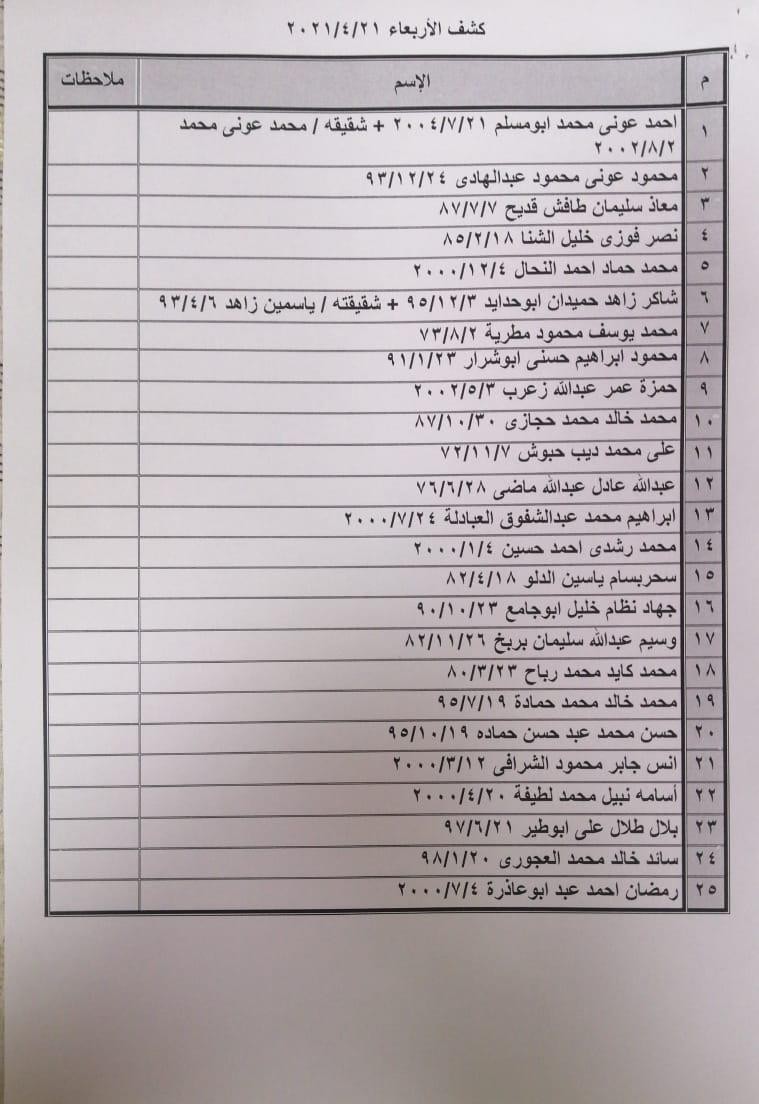 كشف الأربعاء ٢٠٢١/٤/٢١
م الإسم ملاحظات
١ احمد عونى محمد ابومسلم ٢٠٠٤/٧/٢١ + شقيقه / محمد عونى محمد
٢٠٠٢/٨/٢
٢ محمود عونى محمود عبدالهادى ٩٣/١٢/٢٤
٣ معاذ سليمان طافش قديح ٨٧/٧/٧
٤ نصر فوزى خليل الشنا ٨٥/٢/١٨
٥ محمد حماد احمد النحال ٢٠٠٠/١٢/٤
٦ شاكر زاهد حميدان ابوحدايد ٩٥/١٢/٣ + شقيقته / ياسمين زاهد ٩٣/٤/٦
٧ محمد يوسف محمود مطرية ٧٣/٨/٢
٨ محمود ابراهيم حسنى ابوشرار ٩١/١/٢٣
٩ حمزة عمر عبدالله زعرب ٢٠٠٢/٥/٣
١٠ محمد خالد محمد حجازى ٨٧/١٠/٣٠
١١ على محمد ديب حبوش ٧٢/١١/٧
١٢ عبدالله عادل عبدالله ماضى ٧٦/٦/٢٨
١٣ ابراهيم محمد عبدالشفوق العبادلة ٢٠٠٠/٧/٢٤
١٤ محمد رشدى احمد حسين ٢٠٠٠/١/٤
١٥ سحربسام ياسين الدلو ٨٢/٤/١٨
١٦ جهاد نظام خليل ابوجامع ٩٠/١٠/٢٣
١٧ وسيم عبدالله سليمان بربخ ٨٢/١١/٢٦
١٨ محمد كايد محمد رباح ٨٠/٣/٢٣
١٩ محمد خالد محمد حمادة ٩٥/٧/١٩
٢٠ حسن محمد عبد حسن حماده ٩٥/١٠/١٩
٢١ انس جابر محمود الشرافى ٢٠٠٠/٣/١٢
٢٢ أسامه نبيل محمد لطيفة ٢٠٠٠/٤/٢٠
٢٣ بلال طلال على ابوطير ٩٧/٦/٢١
٢٤ سائد خالد محمد العجورى ٩٨/١/٢٠
٢٥ رمضان احمد عبد ابوعاذرة ٢٠٠٠/٧/٤